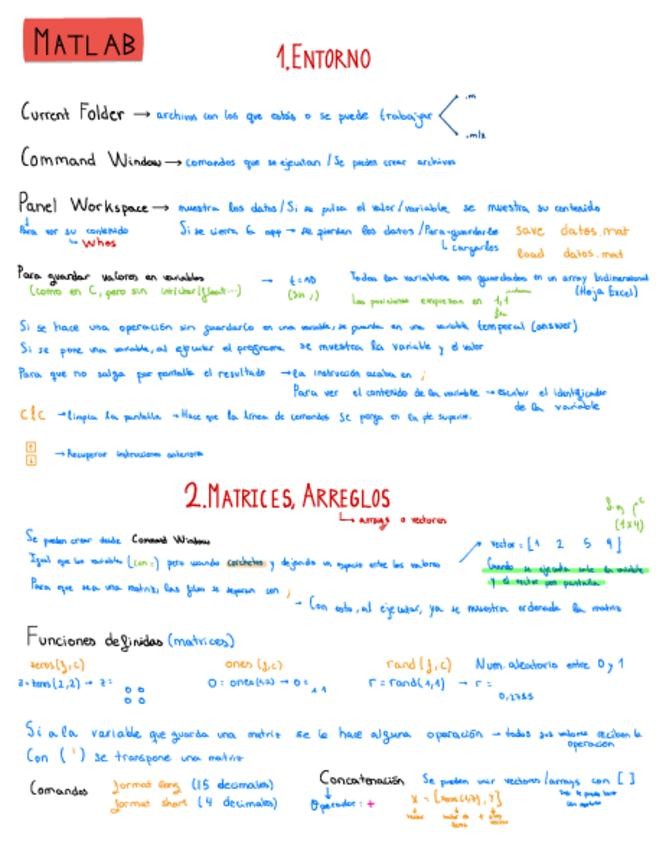 MATLAB
1.ENTORNO
Current Folder → archivos con los que estás o se puede trabajar
.m
.mlx
Command Window → comandos que se ejecutan / Se pueden crear archivos
Panel Workspace → muestra los datos / Si se pulsa el valor/variable se muestra su contenido
Para ver su contenido
whos
Si se cierra la app → se pierden los datos / Para guardarlos save datos.mat
cargarlos load datos.mat
Para guardar valores en variables → t=10
(como en C, pero sin int/char/float...) (sin ;)
Todas las variables son guardadas en un array bidimensional
(Hoja Excel)
Las posiciones empiezan en 1,1
Si se hace una operación sin guardarlo en una variable, se guarda en una variable temporal (answer)
Si se pone una variable, al ejecutar el programa se muestra la variable y el valor
Para que no salga por pantalla el resultado → la instrucción acaba en ;
Para ver el contenido de la variable → escribir el identificador
de la variable
clc → limpia la pantalla → Hace que la línea de comandos se ponga en la pte superior.
↑
↓ → Recuperar instrucciones anteriores
2.MATRICES, ARREGLOS
arrays o vectores
(1x4)
Se pueden crear desde Command Window
Igual que las variables (con =) pero usando corchetes y dejando un espacio entre los valores
vector = [1 2 5 9]
Cuando se ejecuta sale la variable
y el vector por pantalla
Para que sea una matriz, las filas se separan con ;
→ Con esto, al ejecutar, ya se muestra ordenada la matriz
Funciones definidas (matrices)
zeros(f,c) ones(f,c) rand(f,c) Num. aleatorio entre 0 y 1
z=zeros(2,2) → z= 0 0
0 0
O = ones(1,2) → O = 1 1
r = rand(1,1) → r =
Si a la variable que guarda una matriz se le hace alguna operación → todos sus valores reciben la
operación
Con (') se transpone una matriz
Comandos format long (15 decimales)
format short (4 decimales)
Concatenación Se pueden unir vectores/arrays con [ ]
Operador: +